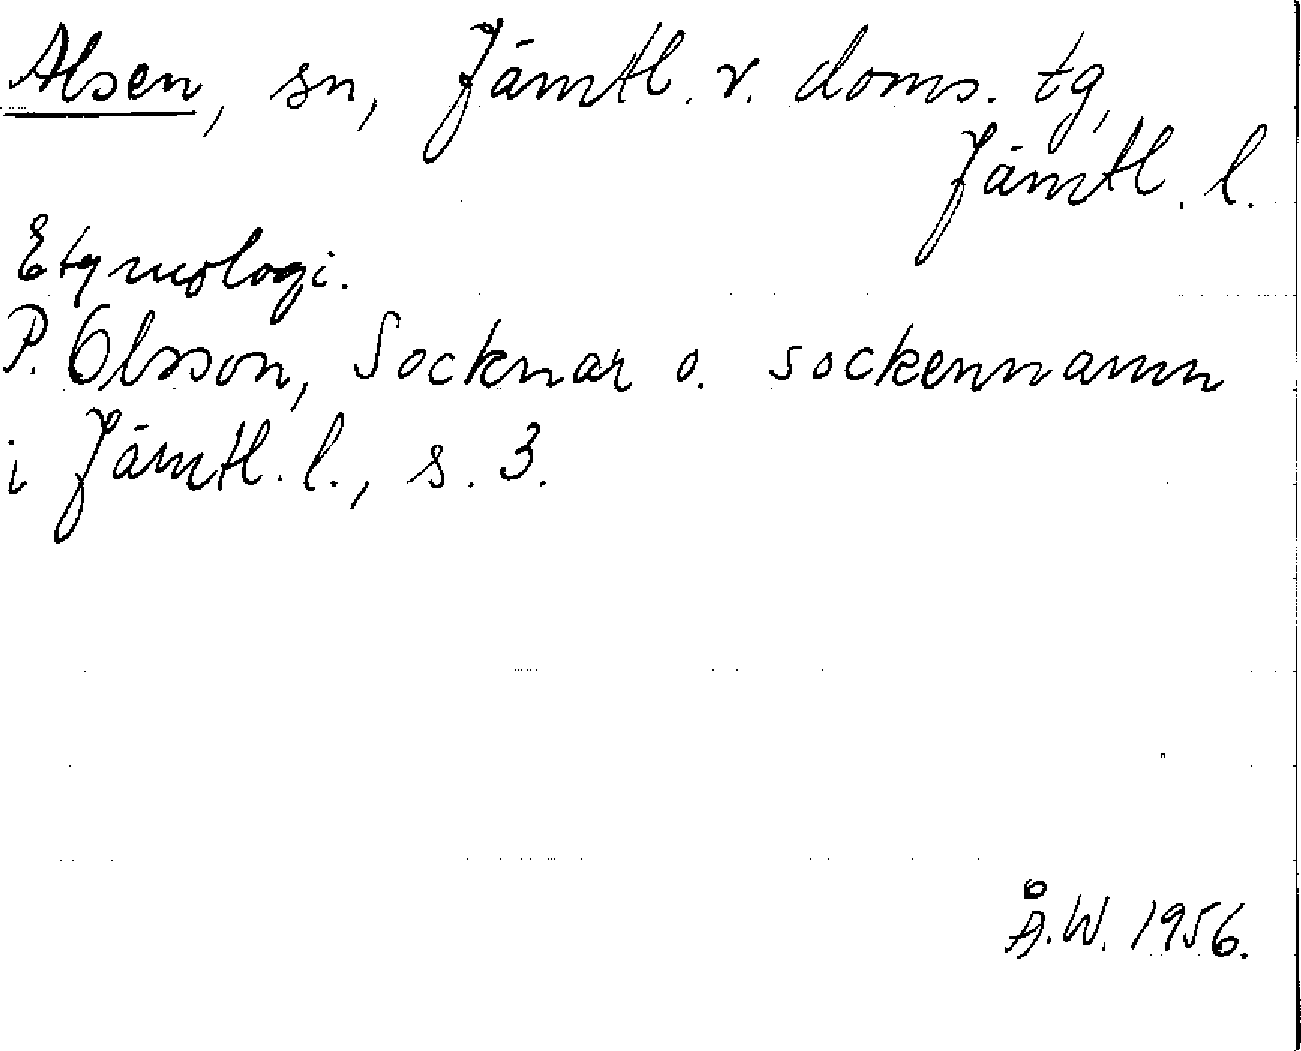 Alsen, sn, Jämtl. v. doms. tg,
Jämtl. l.
Etymologi.
P. Olsson, Socknar o. sockennamn
i Jämtl. l., s. 3.
Å.W. 1956.